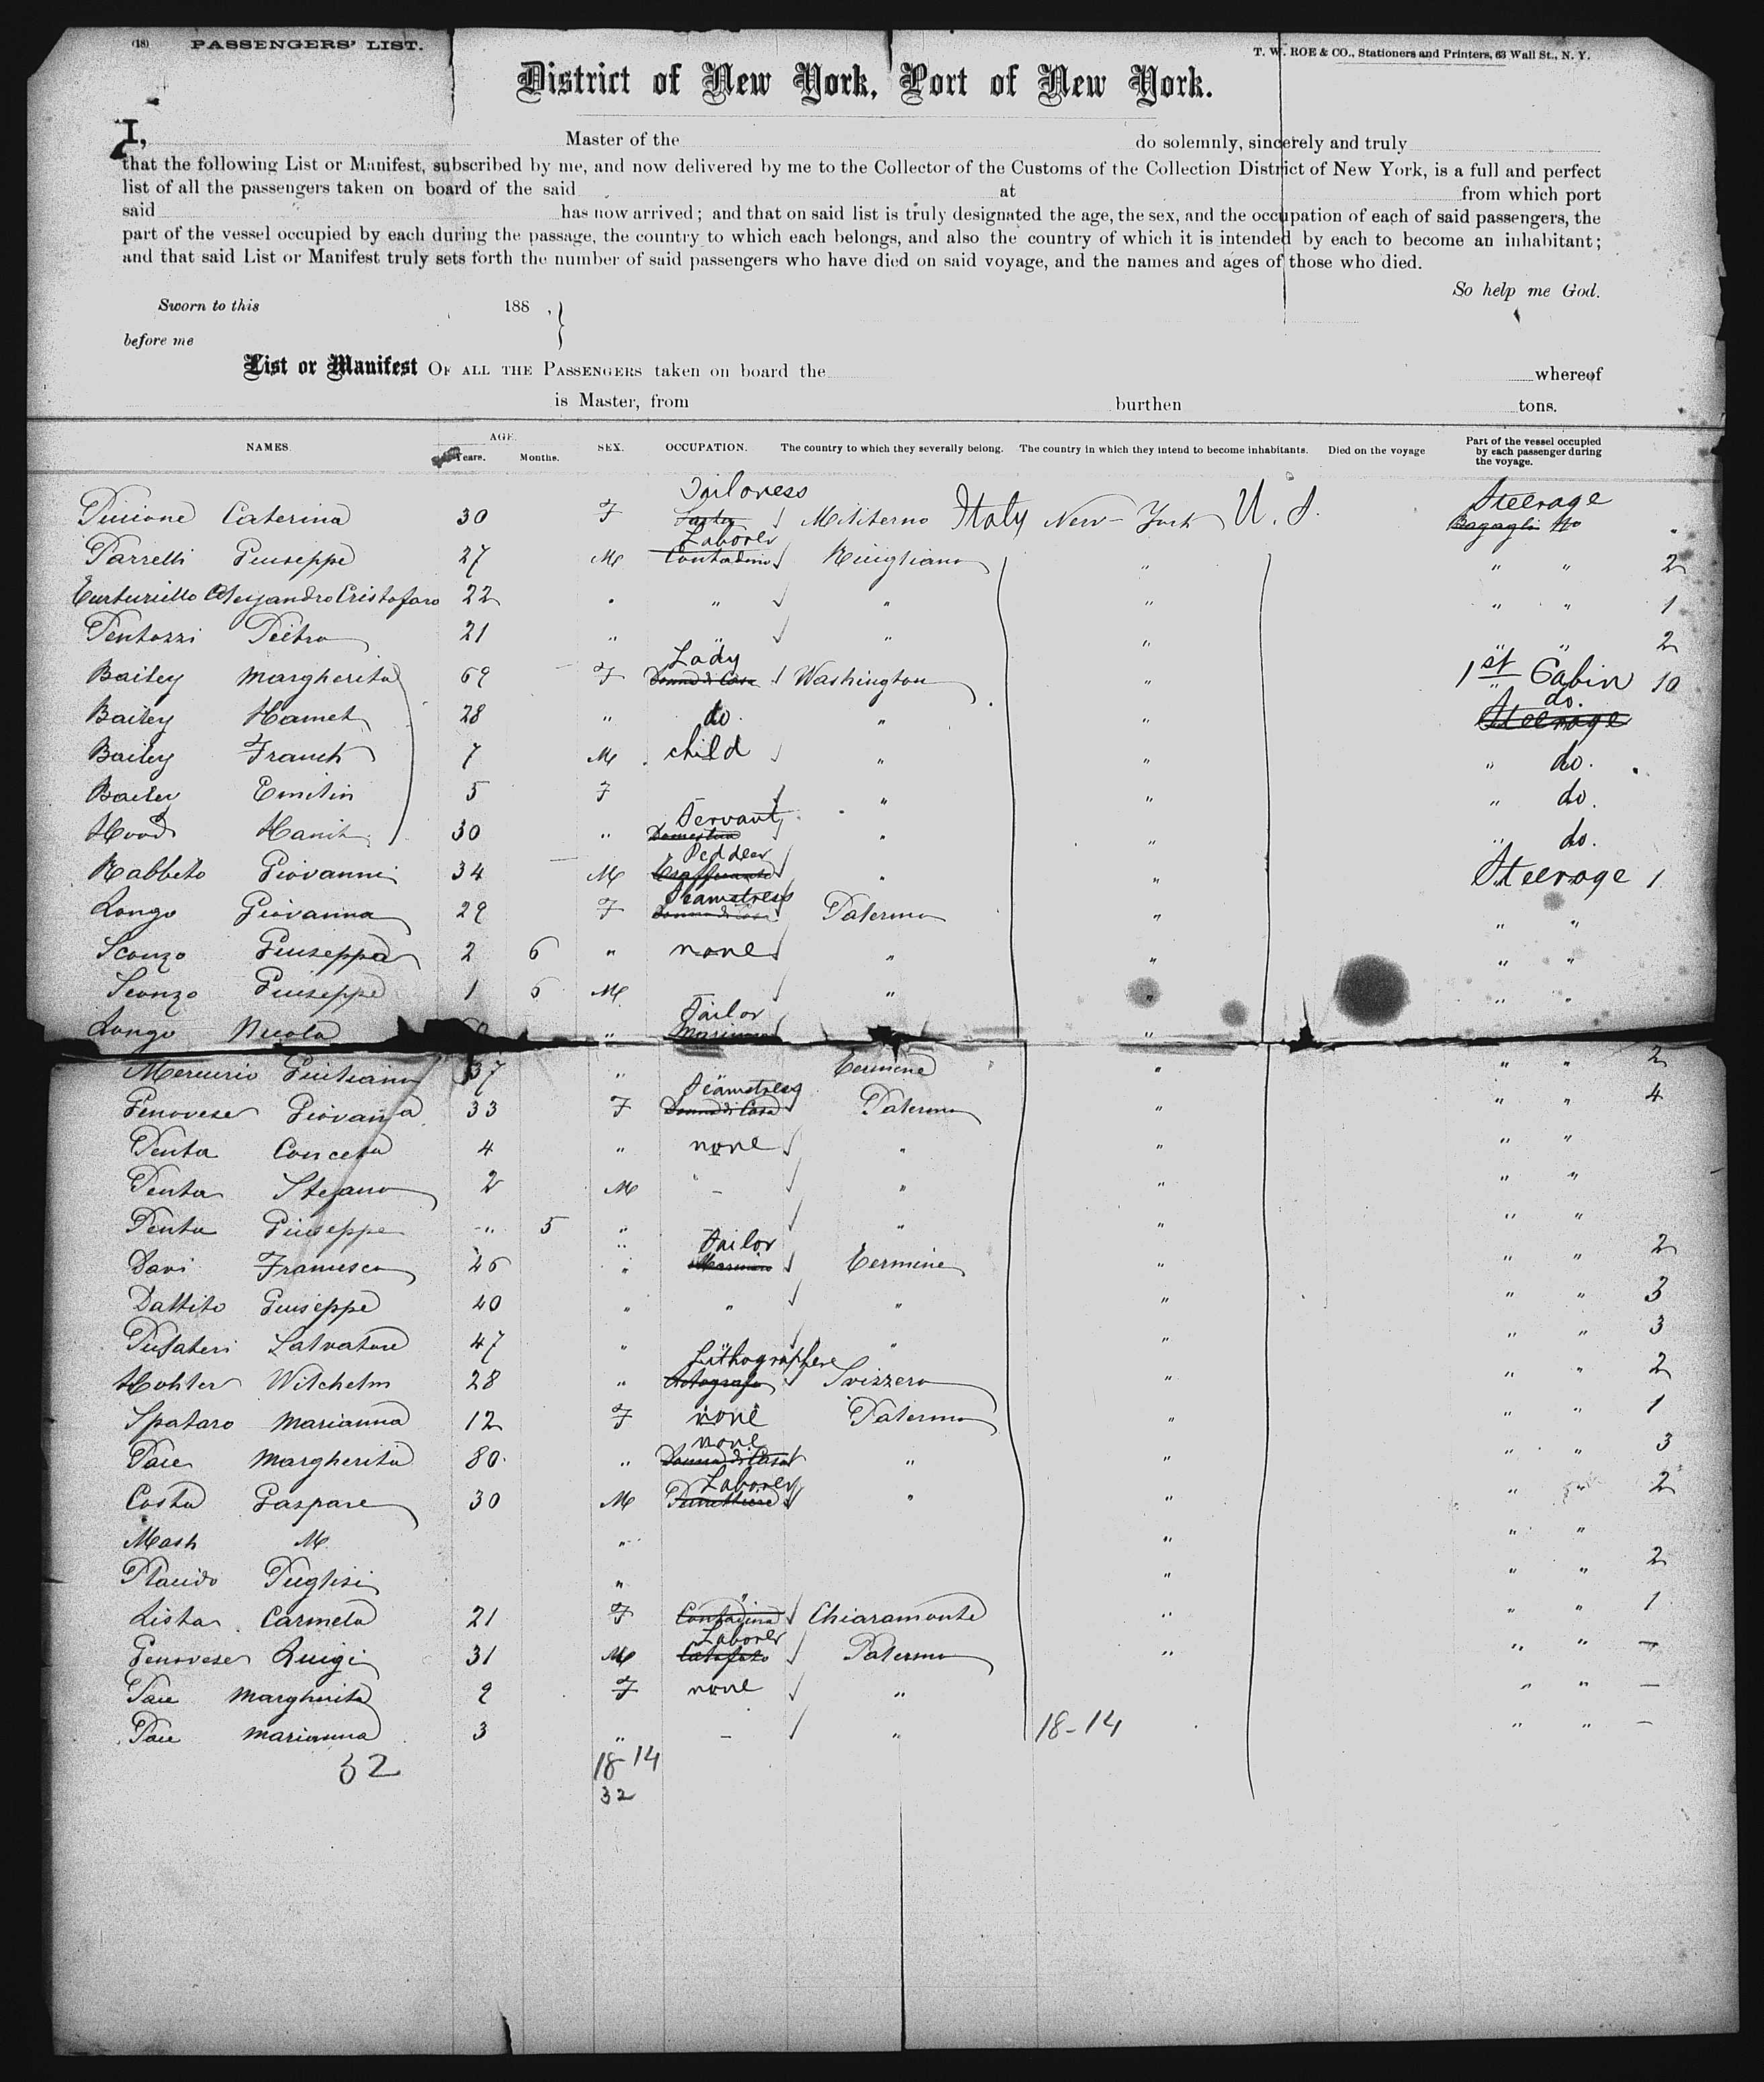 (18) PASSENGERS' LIST.
T. W. ROE & CO., Stationers and Printers, 63 Wall St., N. Y.
District of New York, Port of New York.
I, Master of the do solemnly, sincerely and truly
that the following List or Manifest, subscribed by me, and now delivered by me to the Collector of the Customs of the Collection District of New York, is a full and perfect
list of all the passengers taken on board of the said at from which port
said has now arrived; and that on said list is truly designated the age, the sex, and the occupation of each of said passengers, the
part of the vessel occupied by each during the passage, the country to which each belongs, and also the country of which it is intended by each to become an inhabitant;
and that said List or Manifest truly sets forth the number of said passengers who have died on said voyage, and the names and ages of those who died.
So help me God.
Sworn to this 188 , }
before me
List or Manifest OF ALL THE PASSENGERS taken on board the whereof
is Master, from burthen tons.
NAMES. AGE. Years. Months. SEX. OCCUPATION. The country to which they severally belong. The country in which they intend to become inhabitants. Died on the voyage Part of the vessel occupied by each passenger during the voyage.
Caterina 30 F Tailoress Italy New-York U. S. Steerage "
Parrelli Giuseppe 27 M Laborer Contadino " " " 2
Cristofaro 22 " " " " " " 1
Pietro 21 " " " " " 2
Bailey Margherita 69 F Lady Donna di Casa Washington " 1st Cabin 10
Bailey 28 " do. " " do. Steerage
Bailey Franch 7 M child " " " do.
Bailey 5 F " " " do.
Hood 30 " Servant Domestica " " " do.
Rabbito Giovanni 34 M Peddler " " Steerage 1
Longo Giovanna 29 F Seamstress Donna di Casa Palermo " " "
Sconzo Giuseppa 2 6 " none " " " "
Sconzo Giuseppe 1 6 M " " " "
Longo Nicola " Tailor Marinaro "
Mercurio 37 " Termine " " " 2
Genovese Giovanna 33 F Seamstress Donna di Casa Palermo " " " 4
Penta Conceta 4 " none " " " "
Penta Stefano 2 M " – " " " "
Penta Giuseppe -" 5 " " " " "
Davi Francesco 46 " Tailor Marinaro Termine " " " 2
Dattilo Giuseppe 40 " " " " " " 3
Salvatore 47 " " " " " " 3
Kohler Wilchelm 28 " Lithographer Svizzera " " 2
Spataro Marianna 12 F none Palermo " " " 1
Pace Margherita 80 " none Donna di Casa " " " " 3
Costa Gaspare 30 M Laborer " " " " 2
Mash M. " " " "
Placido Puglisi " " " " 2
Lista Carmela 21 F " Contadina Chiaramonte " " " 1
Genovese Luigi 31 M Laborer Palermo " " " —
Pace Margherita 9 F none " " " —
Pace Marianna 3 " – " 18-14 " " —
32 18-14
32